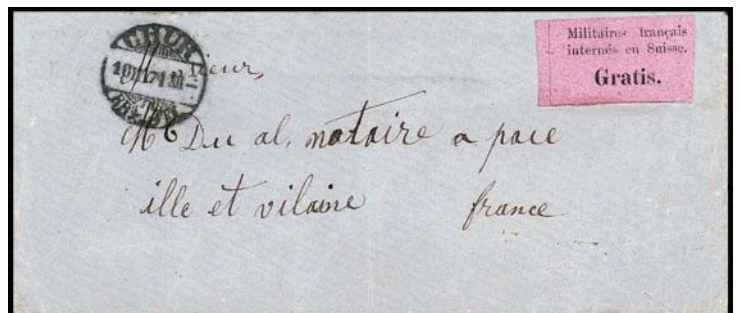 CHUR
Militaires français
internés en Suisse.
Gratis.
Mr Du al, notaire a pace
ille et vilaine france